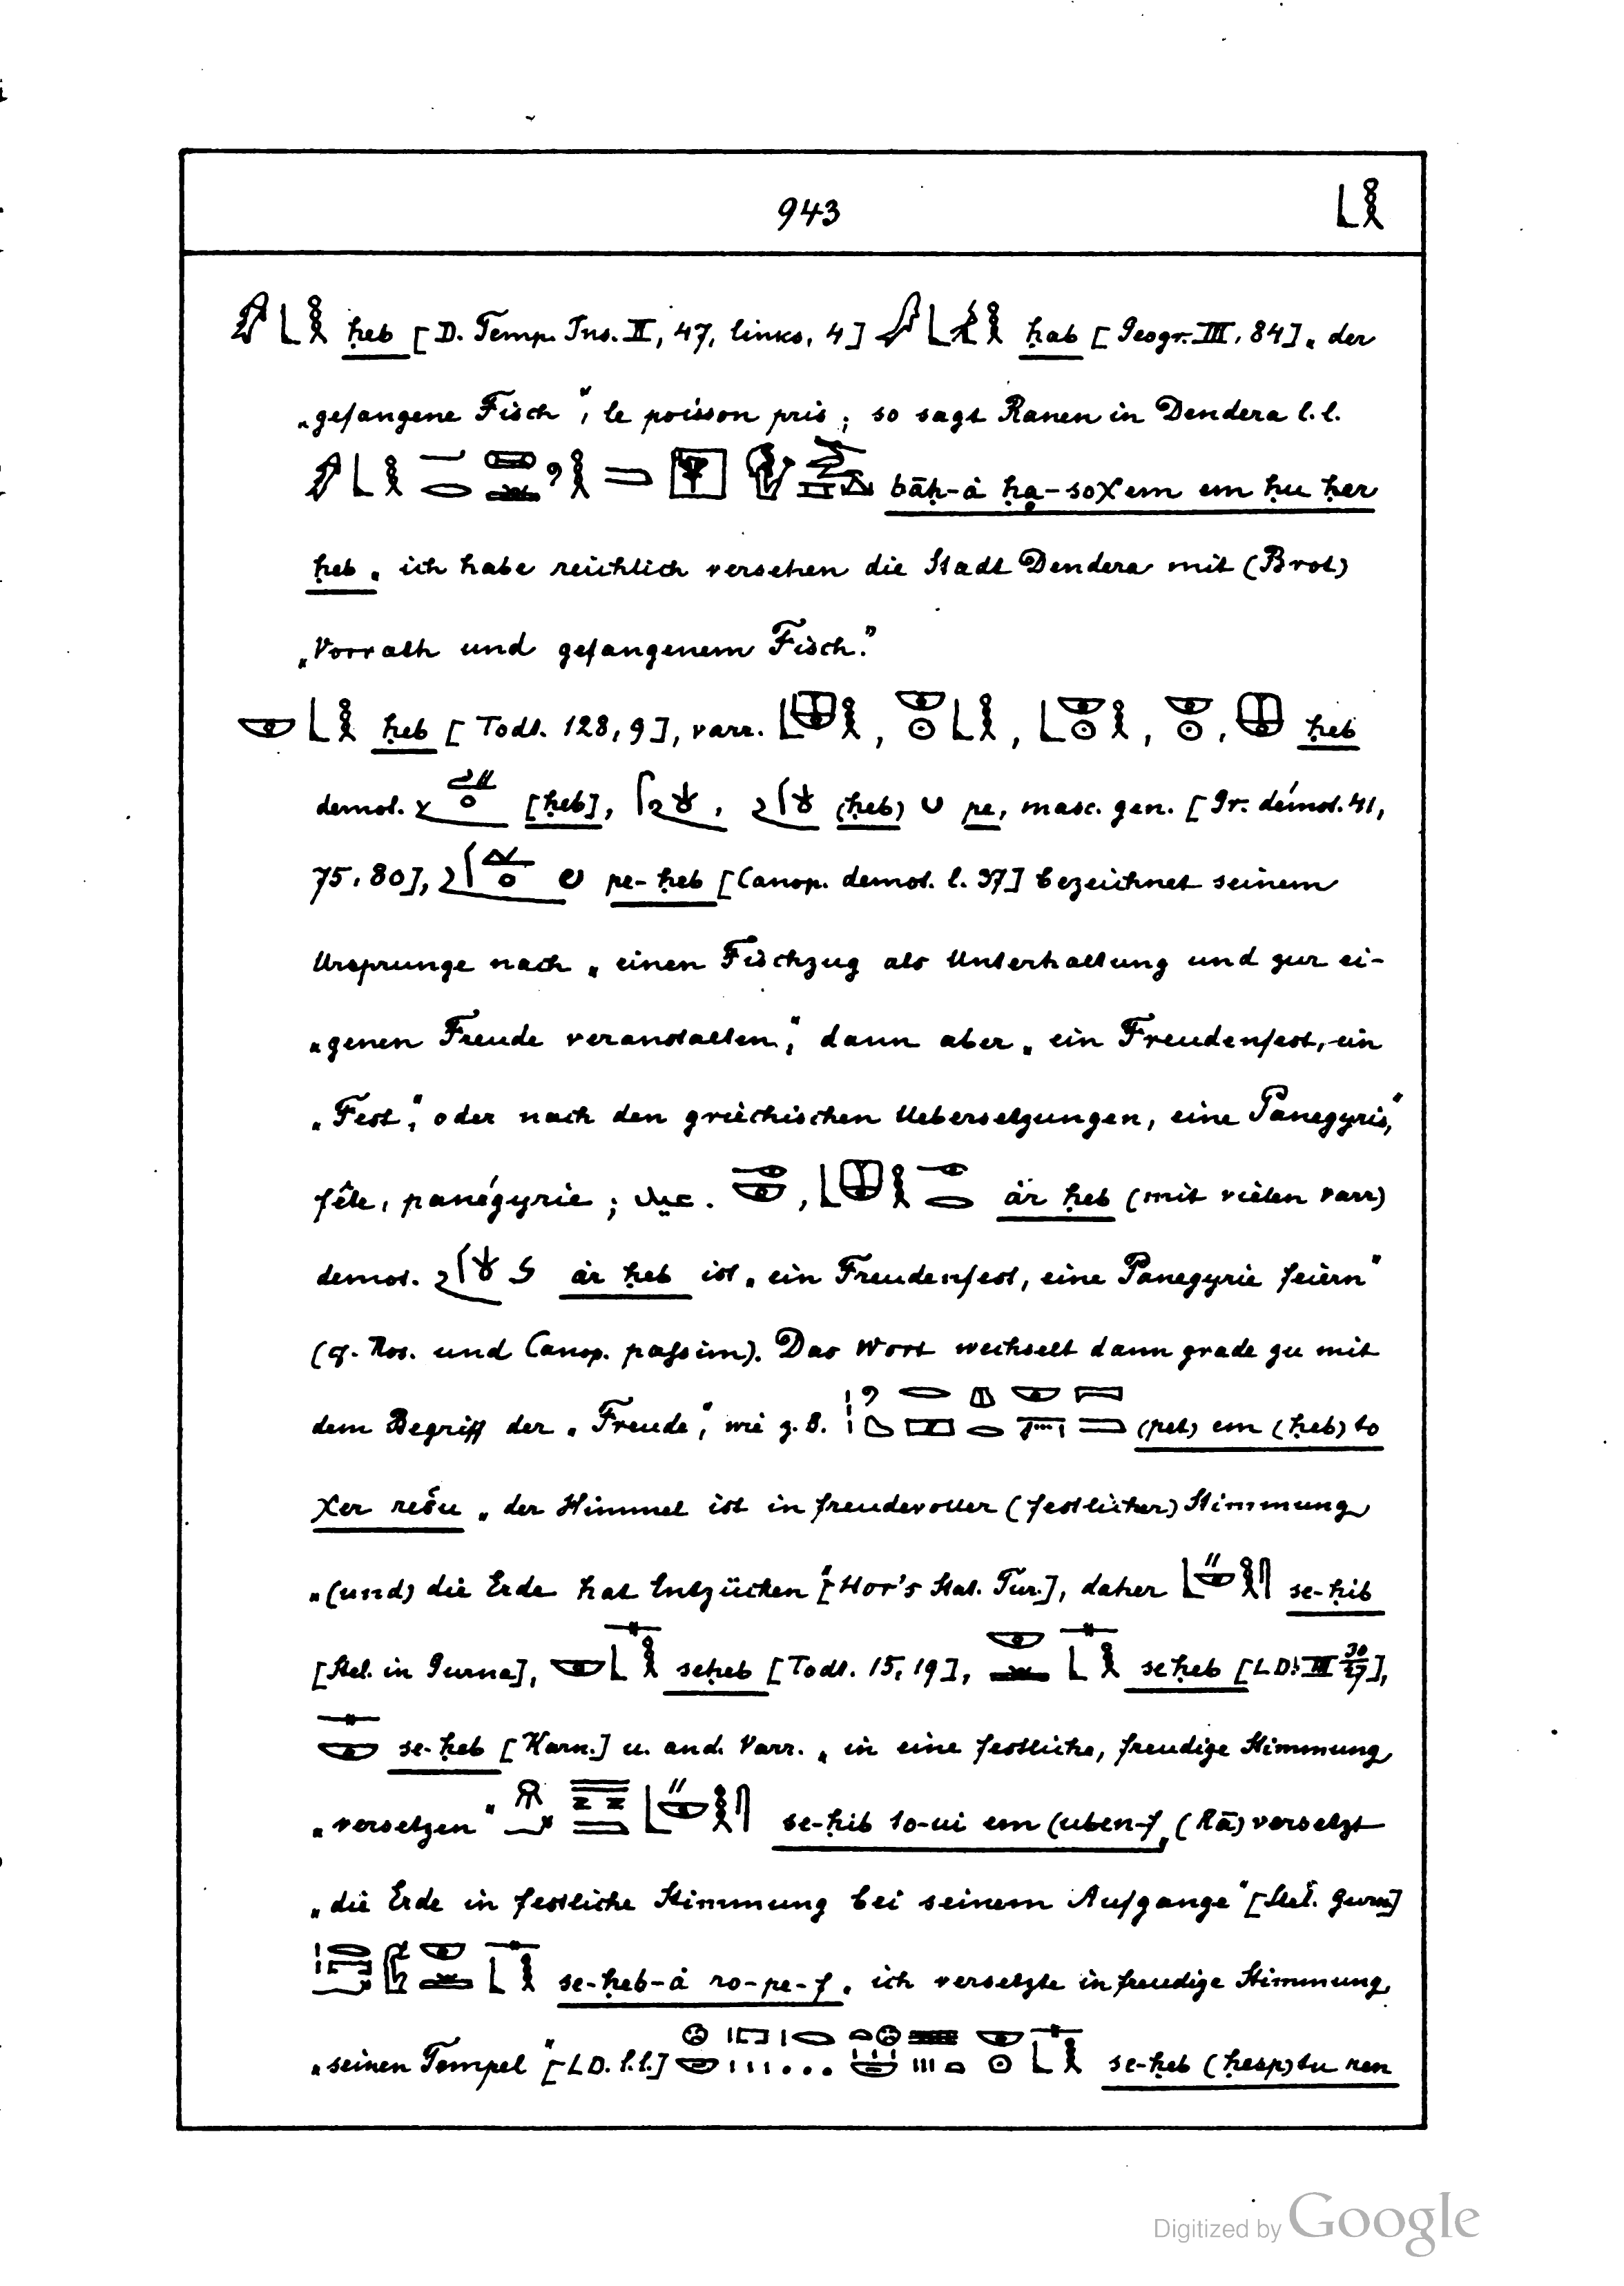 943
ḥeb [D. Temp. Ins. II, 47, links, 4] ḥab [Geogr. III, 84] „der
„gefangene Fisch“, le poisson pris; so sagt Ranen in Dendera l.l.
bāḥ-à ḥa-soχem em ḥu ḥer
ḥeb „ich habe reichlich versehen die Stadt Dendera mit (Brot)
„Vorrath und gefangenem Fisch.“
ḥeb [Todt. 128, 9], varr. , , , , ḥeb
demot. [ḥeb], , (ḥeb) pe, masc. gen. [Gr. démot. 41,
75. 80], pe-ḥeb [Canop. demot. l. 37] bezeichnet seinem
Ursprunge nach „einen Fischzug als Unterhaltung und zur ei-
„genen Freude veranstalten,“ dann aber „ein Freudenfest, ein
„Fest,“ oder nach den griechischen Uebersetzungen, eine Panegyris,“
fête, panégyrie; عيد. , àr ḥeb (mit vielen varr)
demot. àr ḥeb ist „ein Freudenfest, eine Panegyrie feiern“
(cf. Ros. und Canop. passim). Das Wort wechselt dann grade zu mit
dem Begriff der „Freude“, wie z. B. (pet) em (ḥeb) to
χer rešu „der Himmel ist in freudevoller (festlicher) Stimmung
„(und) die Erde hat Entzücken“ [Hor's Stat. Tur.], daher se-ḥib
[Stel. in Gurna], seḥeb [Todt. 15, 19], seḥeb [LD. III 30/27],
se-ḥeb [Karn.] u. and. Varr. „in eine festliche, freudige Stimmung
„versetzen“ se-ḥib to-ui em (uben-f „(Rā) versetzt
„die Erde in festliche Stimmung bei seinem Aufgange“ [Stel. Gurn]
se-ḥeb-à ro-pe-f „ich versetzte in freudige Stimmung
„seinen Tempel“ [LD. l.l.] se-ḥeb (ḥesp) tu nen
Digitized by Google